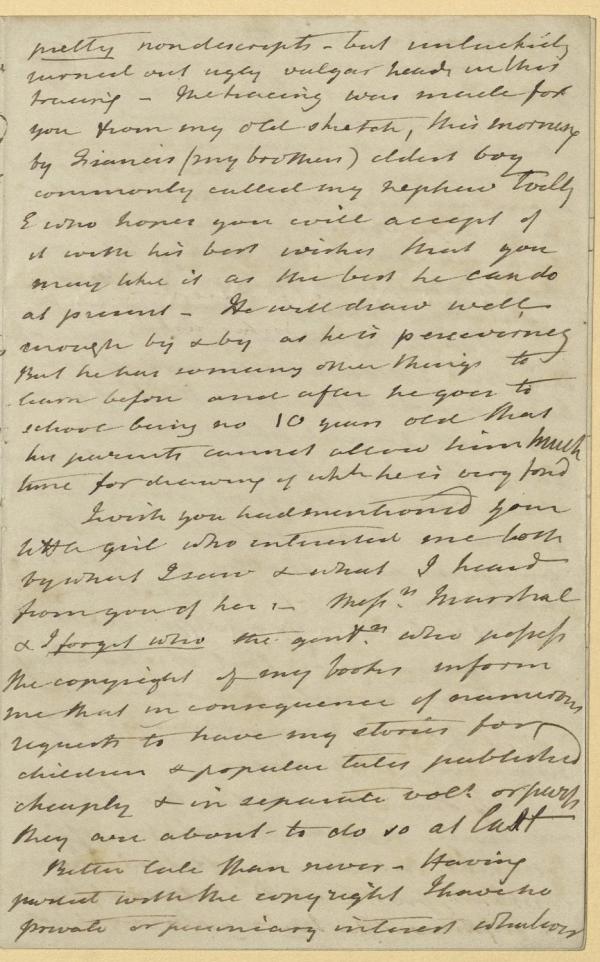 pretty nondescripts - but unluckily
turned out ugly vulgar heads in this
tracing - The tracing was made for
you from my old sketch, this morning
by Francis (my brothers) eldest boy
commonly called my nephew Willy
E who hopes you will accept of
it with his best wishes that you
may like it as the best he can do
at present - He will draw well
enough by & by as he is persevering
But he has so many other things to
learn before and after he goes to
school being no 10 years old that
his parents cannot allow him much
time for drawing of whh he is very fond
I wish you had mentioned your
little girl who interested me both
by what I saw & what I heard
from you of her :- Messrs Marshal
& I forget who the gentn who possess
the copyright of my books inform
me that in consequence of numerous
requests to have my stories for
children & popular tales published
cheaply & in separate vols
they are about to do so at last
Better late than never - Having
parted with the copyright I have no
private or pecuniary interest whatever